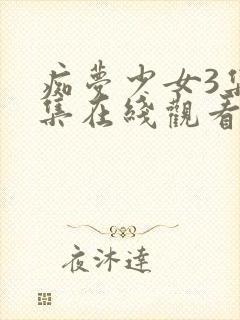 痴夢少女3集
集在綫觀看
夜沐達